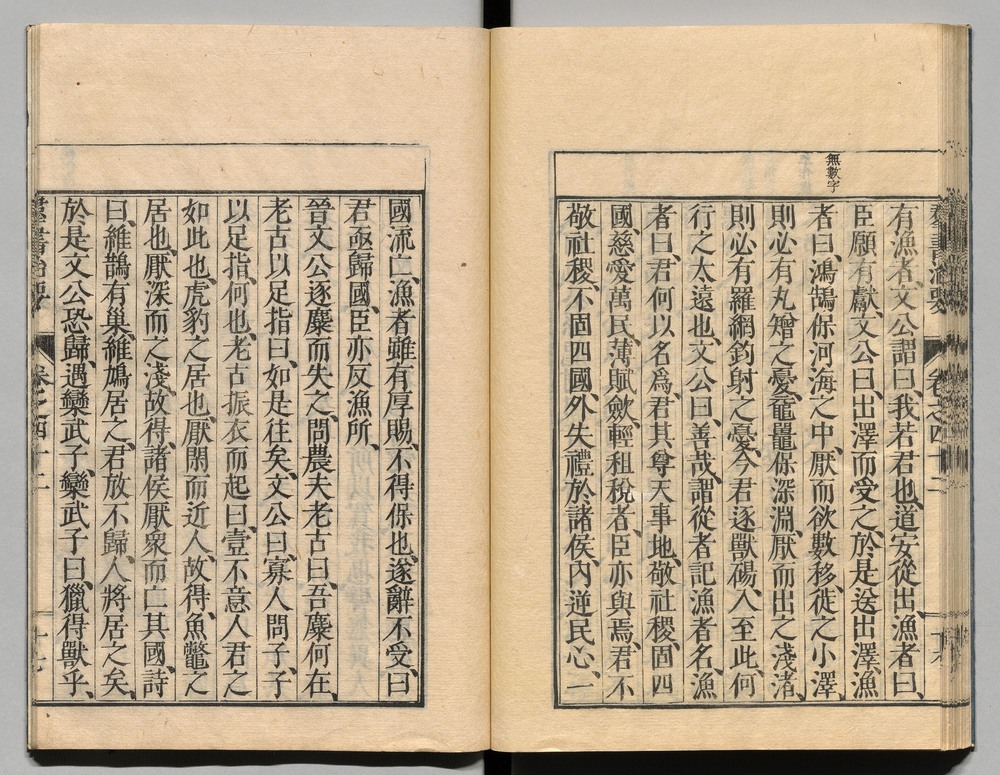 無數字
有漁者、文公謂曰、我若君也、道安從出、漁者曰、
臣願有獻、文公曰、出澤而受之、於是送出澤、漁
者曰、鴻鵠保河海之中、厭而欲數移、徙之小澤
則必有丸矰之憂、黿鼉保深淵、厭而出之淺渚、
則必有羅網釣射之憂、今君逐獸碭、入至此、何
行之太遠也、文公曰、善哉、謂從者記漁者名、漁
者曰、君何以名爲、君其尊天事地、敬社稷、固四
國、慈愛萬民、薄賦斂、輕租稅者、臣亦與焉、君不
敬社稷、不固四國、外失禮於諸侯、內逆民心、一
國流亡、漁者雖有厚賜、不得保也、遂辭不受、曰
君亟歸國、臣亦反漁所、
晉文公逐麋而失之、問農夫老古曰、吾麋何在、
老古以足指曰、如是往矣、文公曰、寡人問子、子
以足指、何也、老古振衣而起曰、壹不意人君之
如此也、虎豹之居也、厭閑而近人、故得、魚鼈之
居也、厭深而之淺、故得、諸侯厭衆而亡其國、詩
曰、維鵲有巢、維鳩居之、君放不歸、人將居之矣、
於是文公恐歸、遇欒武子、欒武子曰、獵得獸乎、
羣書治要
卷之四十二
十七